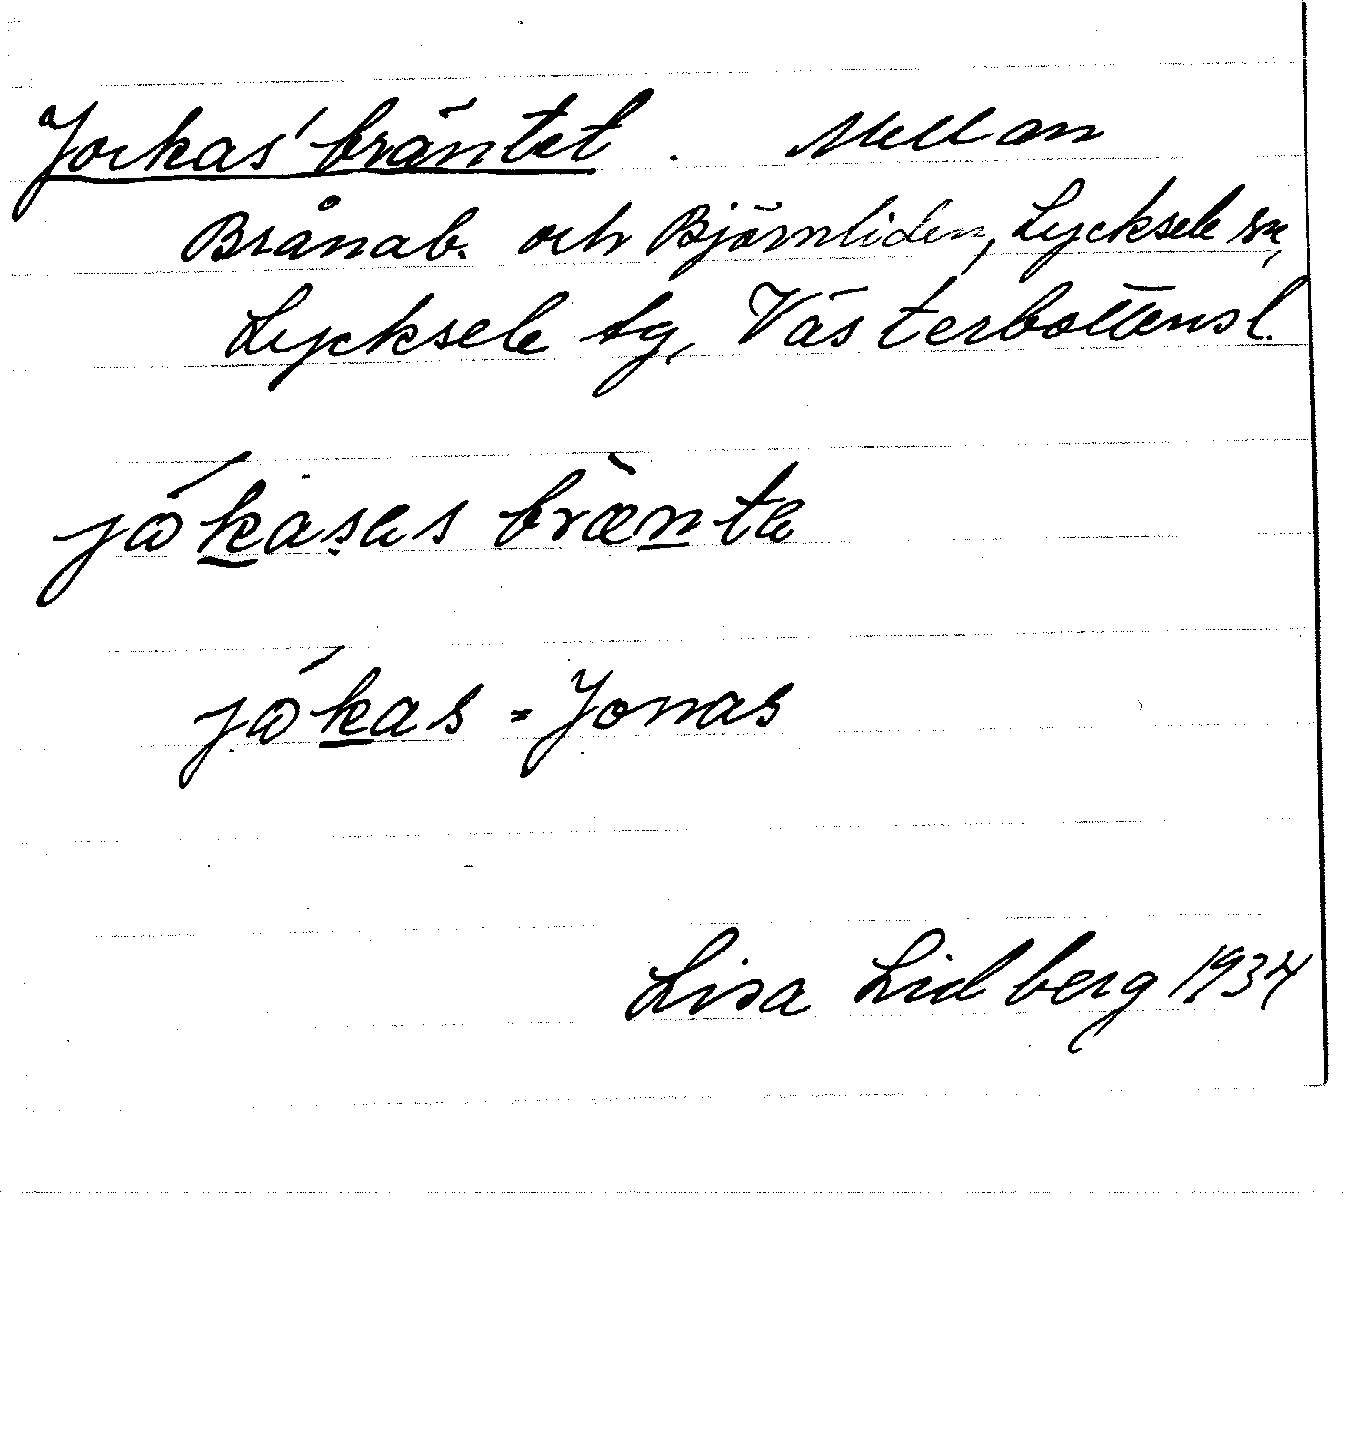 Jockas' bräntet. Mellan
Brånab. och Björnliden, Lycksele sn,
Lycksele tg, Västerbottensl.
jókasas bræ̀nta
jókas = Jonas
Lisa Lidberg 1934